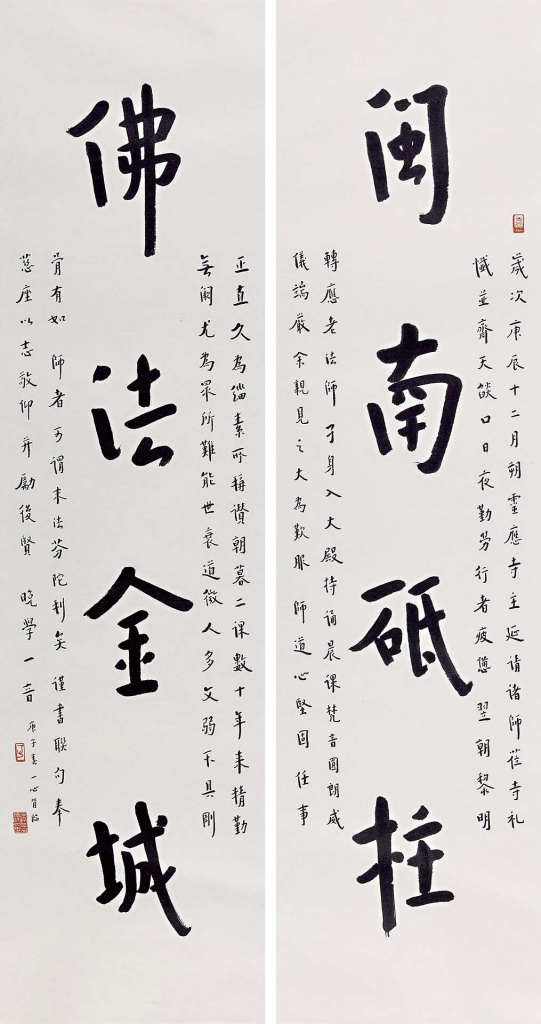 閩南砥柱
歲次庚辰十二月朔靈應寺主延請諸師蒞寺礼
懺並齋天燄口日夜勤勞行者疲憊翌朝黎明
轉應老法師孑身入大殿持誦晨課梵音圓朗威
儀端嚴余親見之大為歎服 師道心堅固任事
佛法金城
正直久為緇素所稱讚朝暮二課數十年來精勤
無闕尤為眾所難能世衰道微人多文弱不具剛
骨有如 師者可謂末法芬陀利矣謹書聯句奉
慈座以志敬仰并勵後賢 晚學一音
庚子春一心